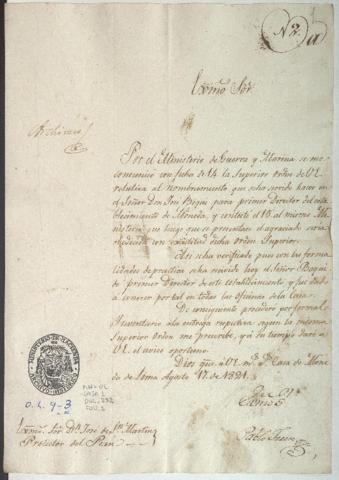 N. 2.
a
Exmo Sor.
Archivese
Por el Ministerio de Guerra y Marina se me
comunicó con fecha de 14 la Superior orden de V.E.
relativa al nombramiento que se ha servido hacer en
el Señor Don José Boqui para primer Director del esta
blecimiento de Moneda, y contexté el 16 al mismo Mi
nisterio que luego que se presentase el agraciado seria
obedecida con exâctitud dicha orden Superior.
Asi se ha verificado pues con las forma
lidades de practica se ha recivido hoy el Señor Boqui
de primer Director de este establecimiento y fue dado
á conocer por tal en todas las oficinas de la Casa.
De consiguiente procedo por formal
Inventario á la entrega segun la misma
Superior orden me prescrive, y á su tiempo daré a
V.E. el aviso oportuno.
Dios gue. á V.E. ms. as. Casa de Mone
da de Lima Agosto 17. de 1821.
Exmo Sor.
Exmo. Sor. Dn. José de Sn. Martin
Protector del Perú
MINISTERIO DE HACIENDA
O.L. 9-3